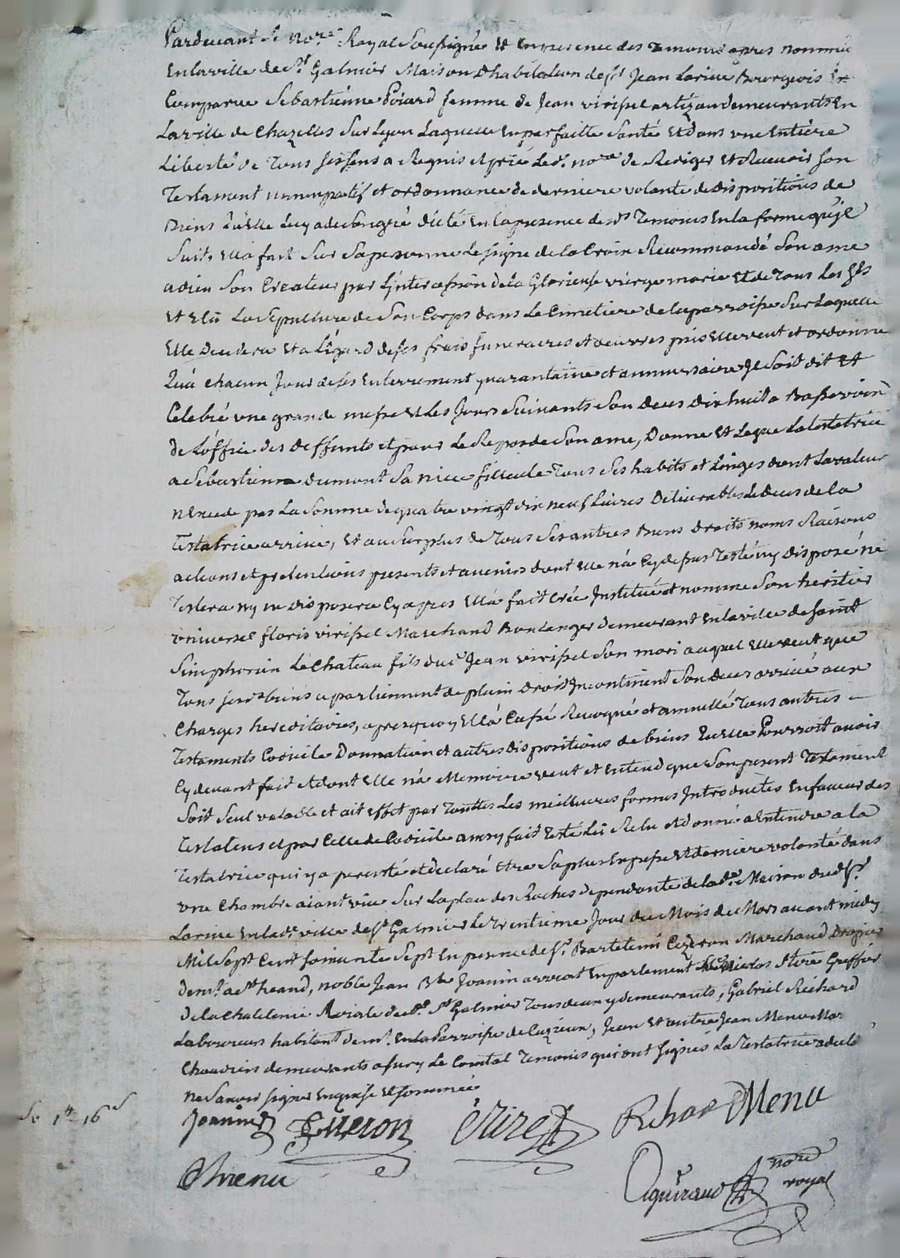 Pardevant le no.re Royal Soussigné Et en presence des temoins apres nommés
En la ville de s.t Galmier Maison D'habitation de s.r Jean Larive Bourgeois Est
Comparue Sebastienne Poiard femme de Jean viricel artizan demeurants En
La ville de Chazelles Sur Lyon Laquelle En parfaitte Santé Et dans une Entiere
Liberté de Tous ses sens a Requis et prié Led. no.re de Rediger Et Recevoir Son
Testament nunnupatif et ordonnance de derniere volonté de dispositions de
Biens qu'Elle luy a de son gré dicté En la presence desd. Temoins En la forme qu'il
Suit, Ella fait Sur Sa personne le signe de la Croix Recommandé Son ame
a dieu Son Createur par L'intercession de la Glorieuse vierge marie Et de Tous Les Sts
Et Elu La Sepulture de Son Corps dans Le Cimetiere de la parroisse Sur Laquelle
Elle Decedera Et a L'égard de ses frais funeraires et oeuvres pies Elle veut et ordonne
Qu'a chacun Jour de ses Enterrement quarantaine et anniversaire Il Soit dit Et
Celebré une grande messe Et Les Jours Suivants Son deces dix huit a Basse voix
de L'office des deffunts et pour Le Repos de Son ame, Donne Et Legue La testatrice
a Sebastienne dumont Sa niece filleule Tous Ses habits et Linges dont La valeur
n'Excede pas La Somme de quatre vingt dix neuf Livres Delivrables Le Deces de la
Testatrice arrivé, Et au Surplus de Tous Ses autres Biens Droits noms Raisons
actions et pretentions presents et avenir dont Elle n'a Cy de pas Testé ny disposé ne
Testera ny ne disposera Cy apres Ella fait Créé Institué et nommé Son heritier
universel floris viricel Marchand Boulanger demeurant En la ville de Saint
Simphorien Le Chateau fils du s.r Jean viricel Son mari auquel Elle veut que
Tous sesd. biens appartiennent de plein Droit Incontinent Son deces arrivé aux
Charges hereditaires, apres quoy Ella Cassé Revoqué et annullé Tous autres
Testaments Codicile Donnation et autres dispositions de biens qu'Elle Pourroit avoir
Cy devant fait et dont Elle n'a Memoire veut et Entend que Son present Testament
Soit Seul valable et ait Effet par Touttes Les meilleures formes Introduittes En faveur des
Testateurs et par Celle de Codicile ainsy fait Testé Lu Relu et donné a Entendre a la
Testatrice qui y a persisté et declaré Etre Sa plus Expresse Et derniere volonté dans
une Chambre aiant vue Sur La place des Roches dependante de lad. Maison dud. s.r
Larive En lad. ville de s.t Galmier Le trentieme Jour du Mois de Mars avant midy
Mil Sept Cent Soixante Sept En presence de s.r Bartelemi Marchand
noble Jean B.te Joanin avocat En parlement Nicolas Greffier
de la Chatelenie Roiale de lad. ville s.t Galmier Tous deux y demeurants, Gabriel Richard
Laboureur habitant En la Parroisse de Jean Et autre Jean Menu
demeurants a Sury Le Comtal Temoins qui ont Signés La Testatrice a declaré
ne Savoir signer Enquise Et Sommée
Se 1.tt 16.s
Joannin Richard Menu
JMenu no.re royal